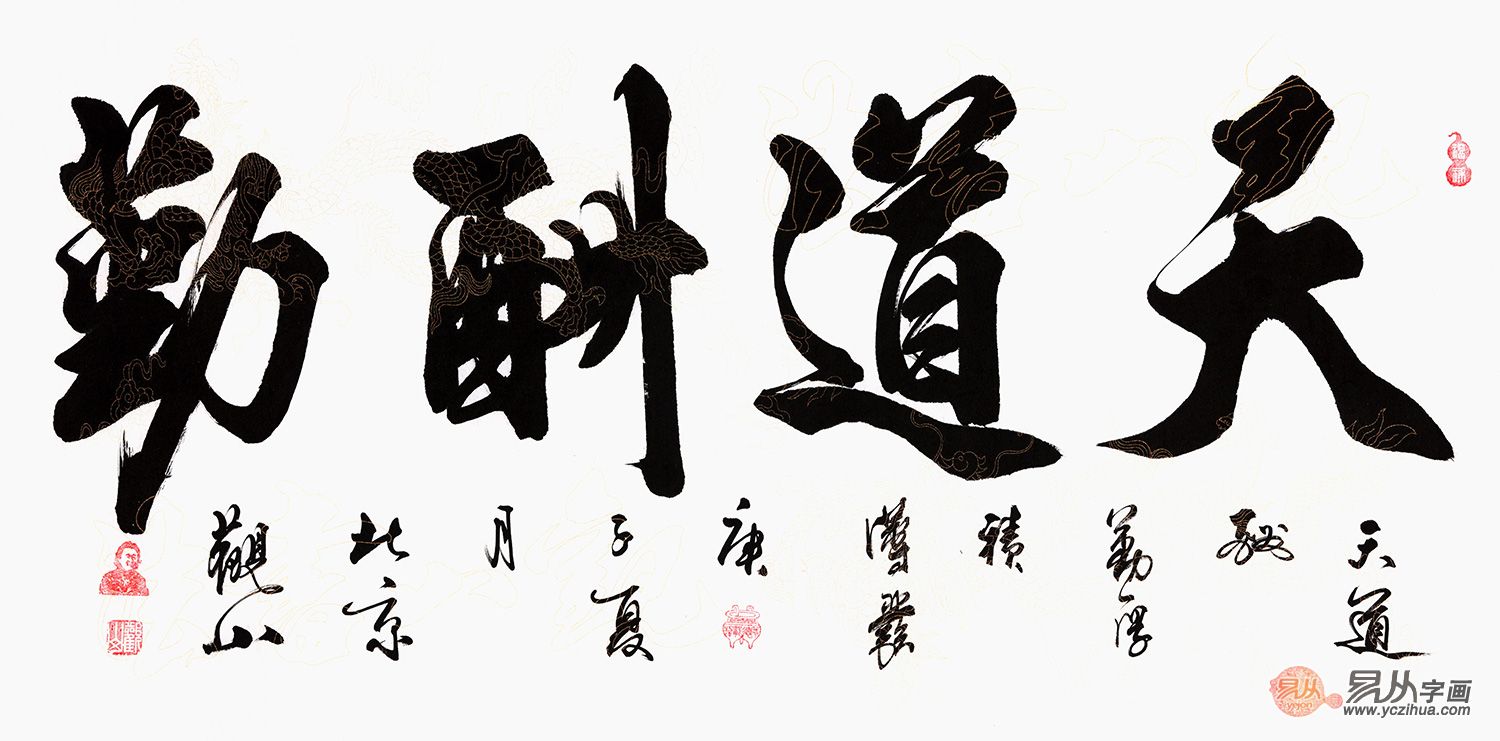 天道酬勤
天道
酬
勤厚
積
薄發
庚
子夏
月
北京
觀山
易从
易从字画
www.yczihua.com